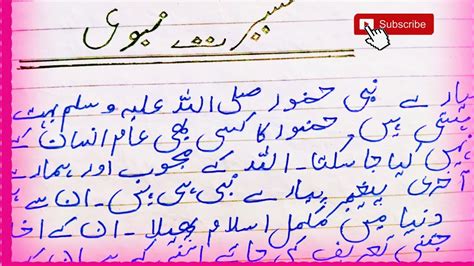 Subscribe
سیرت نبوی
پیارے نبی حضور صلی اللہ علیہ وسلم بہت
ہیں۔ حضور کا کسی بھی عام انسان کے
نہیں کیا جا سکتا۔ اللہ کے محبوب اور ہمارے
آخری پیغمبر ہمارے نبی ہی ہیں۔ ان سے ہی
دنیا میں مکمل اسلام پھیلا۔ ان کے اخلا
جتنی تعریف کی جائے اتنی کم